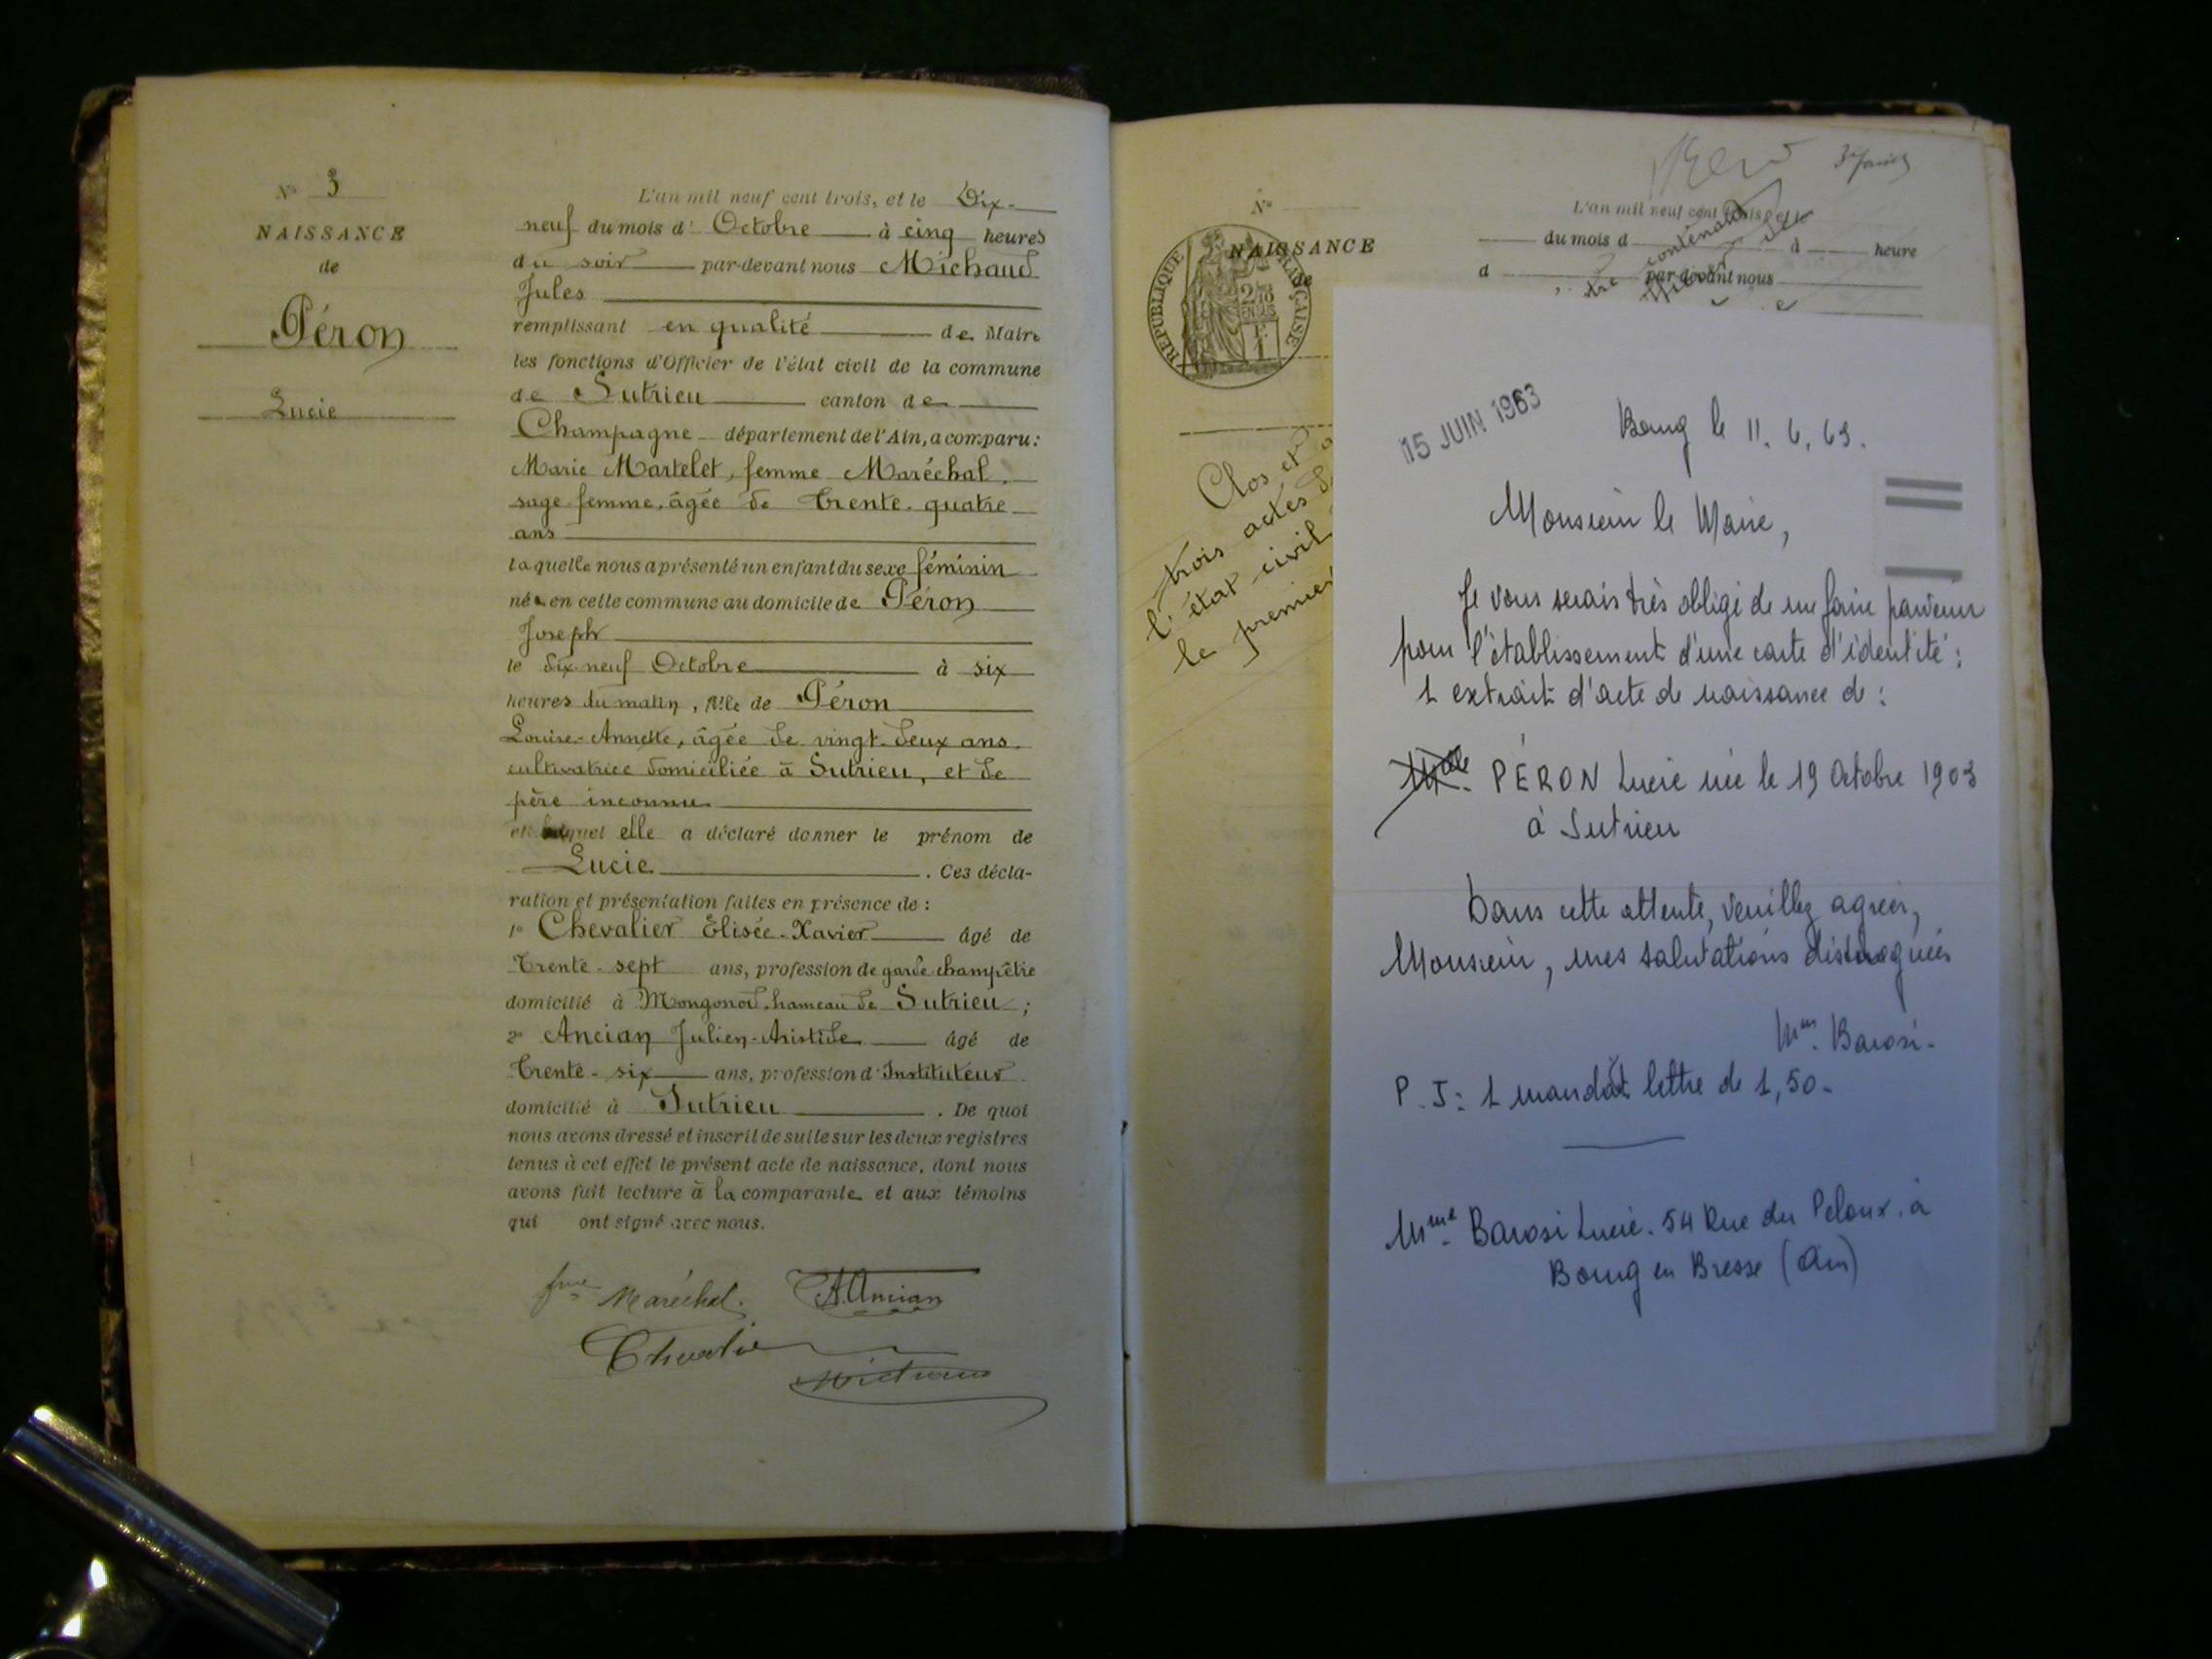 N° 3
NAISSANCE
de
Péron
Lucie
L'an mil neuf cent trois, et le Dix-
neuf du mois d' Octobre à cinq heures
du soir par-devant nous Michaud
Jules
remplissant en qualité de Maire
les fonctions d'Officier de l'état civil de la commune
de Sutrieu canton de
Champagne département de l'Ain, a comparu :
Marie Martelet, femme Maréchal,
sage-femme, âgée de trente-quatre
ans
laquelle nous a présenté un enfant du sexe féminin
née en cette commune au domicile de Péron
Joseph
le dix-neuf Octobre à six
heures du matin, fille de Péron
Louise-Annette, âgée de vingt-deux ans,
cultivatrice domiciliée à Sutrieu, et de
père inconnu
et elle a déclaré donner le prénom de
Lucie. Ces décla-
ration et présentation faites en présence de :
1° Chevalier Elisée-Xavier âgé de
trente-sept ans, profession de garde-champêtre
domicilié à Mongonod, hameau de Sutrieu ;
2° Ancian Julien-Aristide âgé de
trente-six ans, profession d'Instituteur
domicilié à Sutrieu. De quoi
nous avons dressé et inscrit de suite sur les deux registres
tenus à cet effet le présent acte de naissance, dont nous
avons fait lecture à la comparante et aux témoins
qui ont signé avec nous.
fme Maréchal. A. Ancian
Chevalier
Michaud
N°
NAISSANCE
de
RÉPUBLIQUE FRANÇAISE
2/10
EN SUS
L'an mil neuf cent trois et le
du mois d à heure
d par-devant nous
contenant
Clos et
trois actes d
l'état civil
le premier
15 JUIN 1963
Bourg le 11. 6. 63.
Monsieur le Maire,
Je vous serais très obligé de me faire parvenir
pour l'établissement d'une carte d'identité :
1 extrait d'acte de naissance de :
PÉRON Lucie née le 19 Octobre 1903
à Sutrieu
Dans cette attente, veuillez agréer,
Monsieur, mes salutations distinguées
Mme. Barosi.
P.J : 1 mandat lettre de 1,50.
Mme Barosi Lucie. 54 Rue du Peloux. à
Bourg en Bresse (Ain)